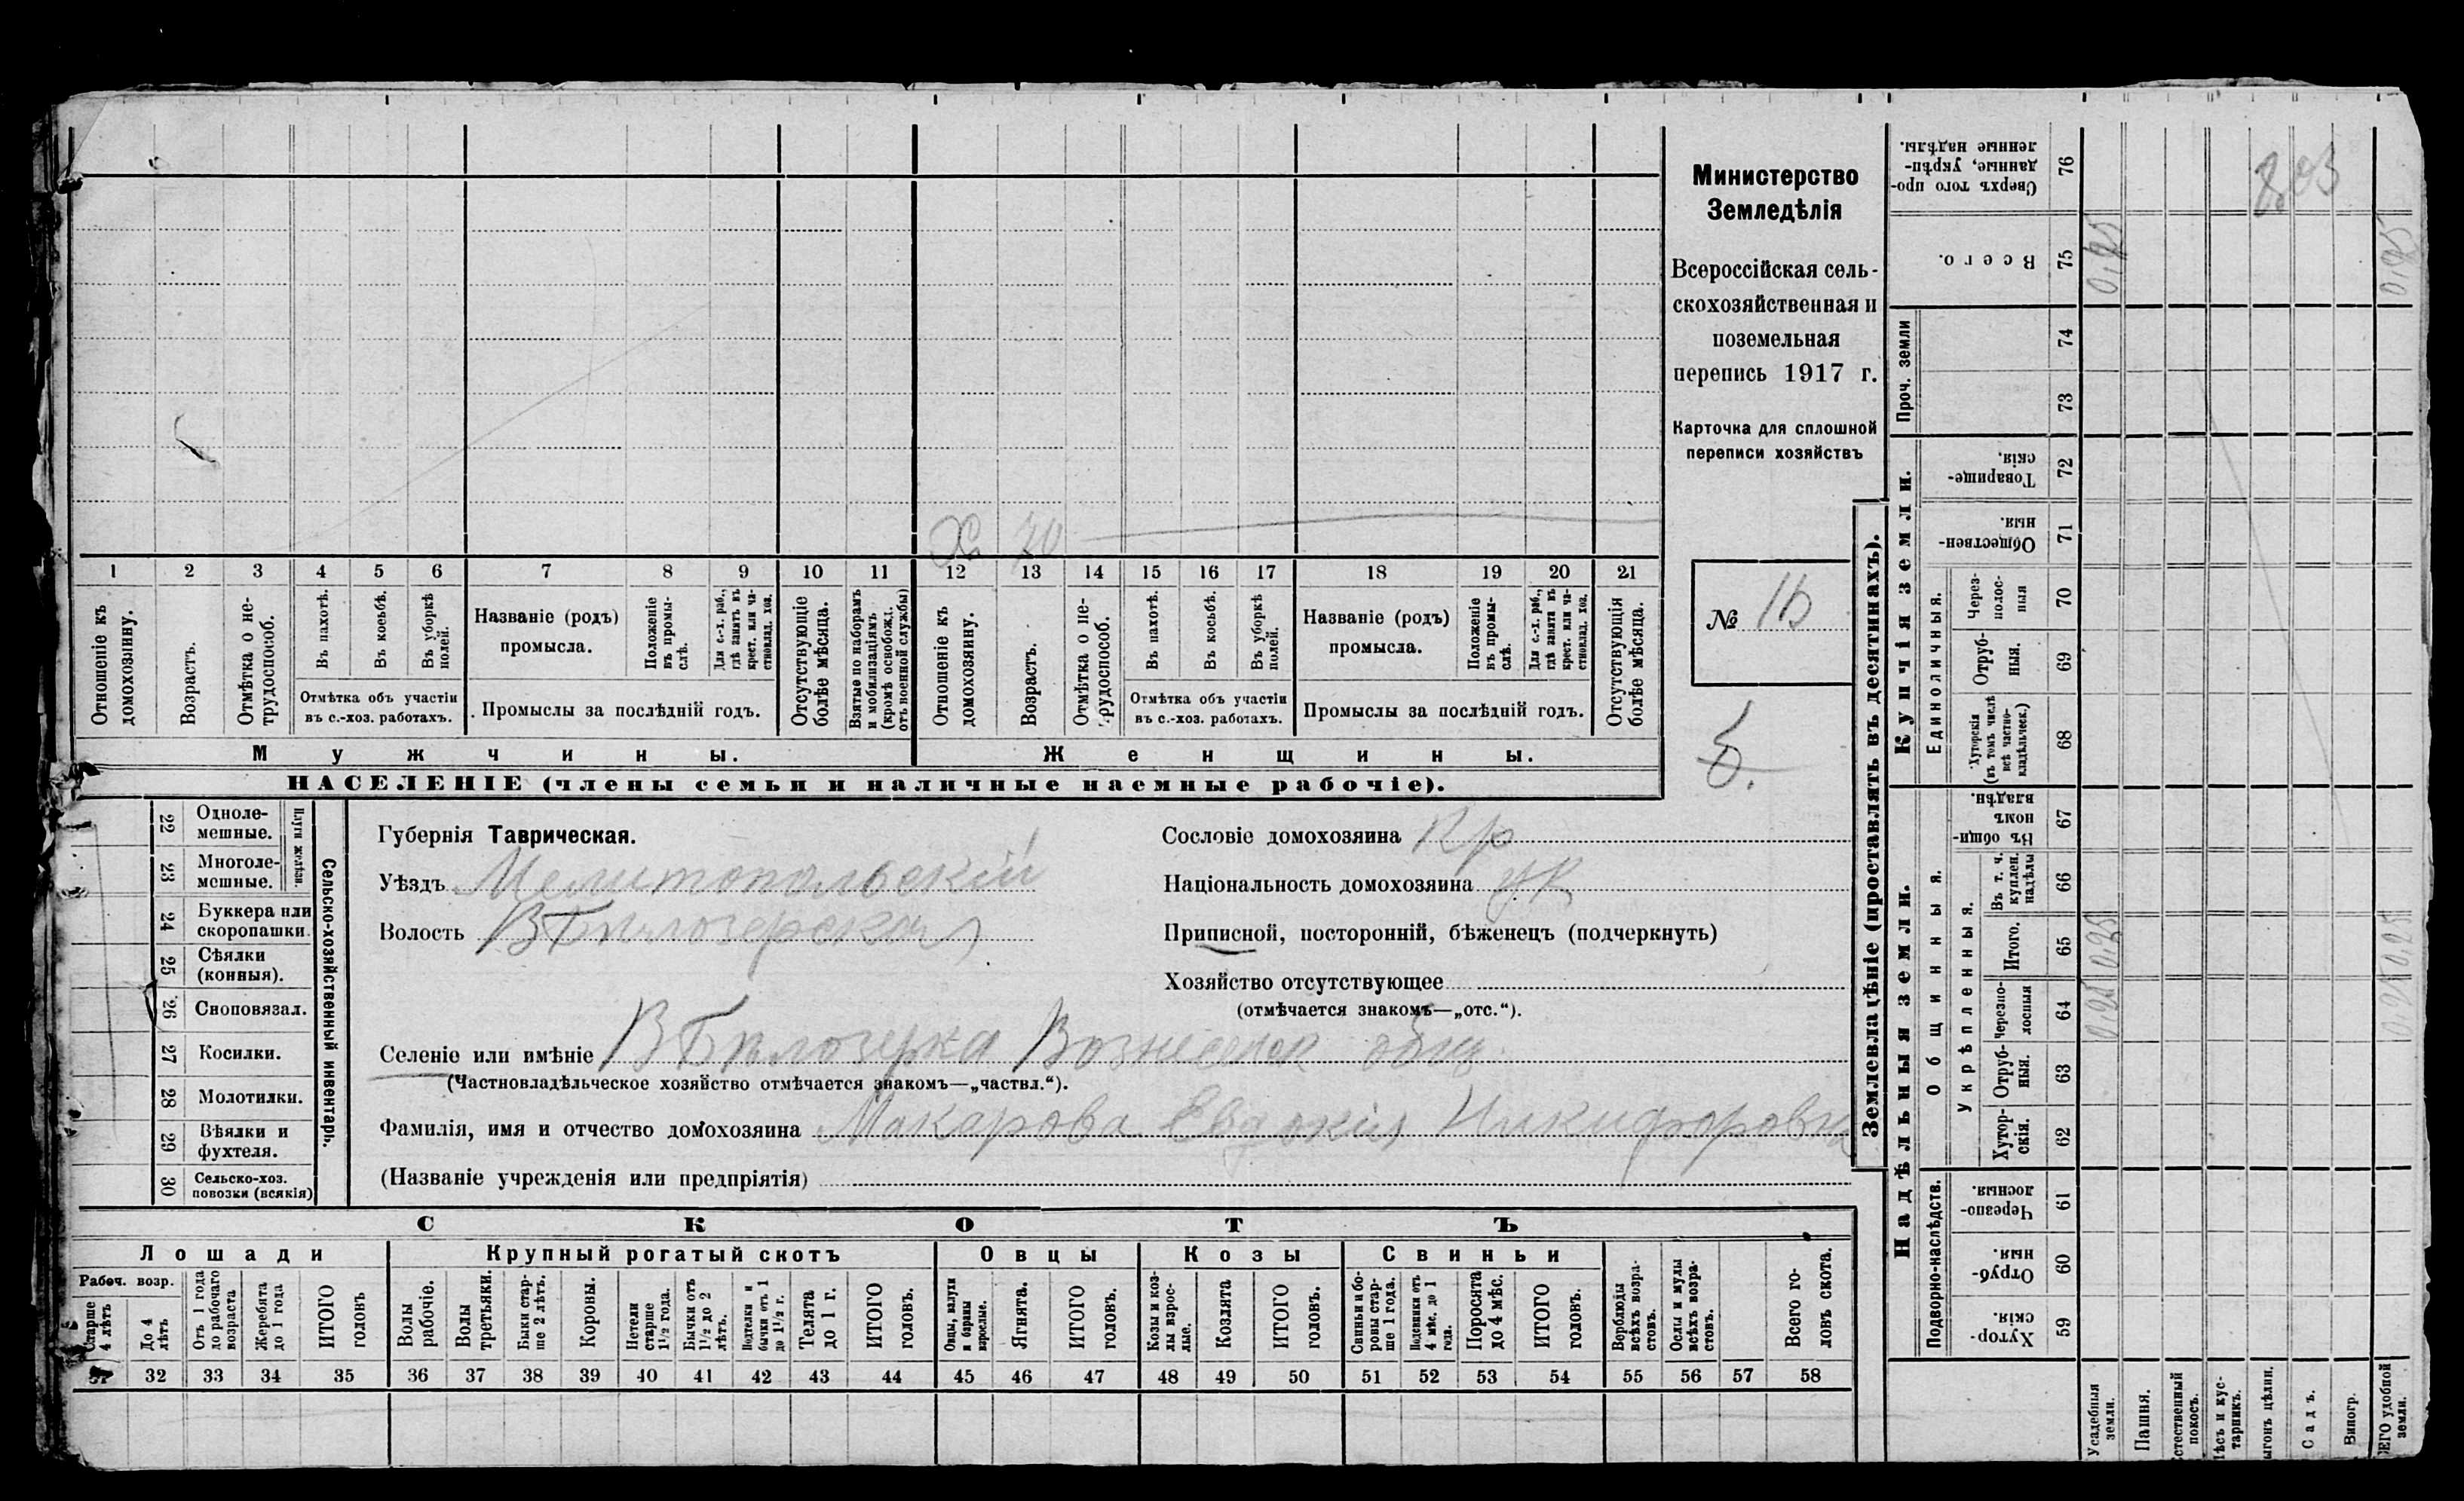 Министерство
Земледѣлія
Всероссійская сель-
скохозяйственная и
поземельная
перепись 1917 г.
Карточка для сплошной
переписи хозяйствъ
№ 16
Б.
Х 70
1 2 3 4 5 6 7 8 9 10 11 12 13 14 15 16 17 18 19 20 21
Отношеніе къ домохозяину.
Возрастъ.
Отмѣтка о не-трудоспособ.
Въ пахотѣ.
Въ косьбѣ.
Въ уборкѣ полей.
Отмѣтка объ участіи
въ с.-хоз. работахъ.
Названіе (родъ)
промысла.
Положеніе въ промы-слѣ.
Для с.-х. раб., гдѣ занятъ въ крест. или ча-стновлад. хоз.
Промыслы за послѣдній годъ.
Отсутствующіе болѣе мѣсяца.
Взятые по наборамъ и мобилизаціямъ (кромѣ освобожд. отъ военной службы)
Отношеніе къ домохозяину.
Возрастъ.
Отмѣтка о не-трудоспособ.
Въ пахотѣ.
Въ косьбѣ.
Въ уборкѣ полей.
Отмѣтка объ участіи
въ с.-хоз. работахъ.
Названіе (родъ)
промысла.
Положеніе въ промы-слѣ.
Для с.-х. раб., гдѣ занята въ крест. или ча-стновлад. хоз.
Промыслы за послѣдній годъ.
Отсутствующія болѣе мѣсяца.
Мужчины.
Женщины.
НАСЕЛЕНІЕ (члены семьи и наличные наемные рабочіе).
22 Одноле-мешные.
23 Многоле-мешные.
Плуги желѣзн.
24 Буккера или скоропашки.
25 Сѣялки (конныя).
26 Сноповязал.
27 Косилки.
28 Молотилки.
29 Вѣялки и фухтеля.
30 Сельско-хоз. повозки (всякія)
Сельско-хозяйственный инвентарь.
Губернія Таврическая.
Уѣздъ Мелитопольскій
Волость В Бѣлозерская
Сословіе домохозяина Кр
Національность домохозяина ук
Приписной, посторонній, бѣженецъ (подчеркнуть)
Хозяйство отсутствующее
(отмѣчается знакомъ—„отс.“).
Селеніе или имѣніе В Бѣлозерка Вознесенск общ
(Частновладѣльческое хозяйство отмѣчается знакомъ—„частвл.“).
Фамилія, имя и отчество домохозяина Макарова Евдокія Никифоровна
(Названіе учрежденія или предпріятія)
СКОТЪ
Лошади
Крупный рогатый скотъ
Овцы
Козы
Свиньи
Рабоч. возр.
Старше 4 лѣтъ
До 4 лѣтъ
Отъ 1 года до рабочаго возраста
Жеребята до 1 года
ИТОГО головъ
Волы рабочіе.
Волы третьяки.
Быки стар-ше 2 лѣтъ.
Коровы.
Нетели старше 1½ года.
Бычки отъ 1½ до 2 лѣтъ.
Подтелки и бычки отъ 1 до 1½ г.
Телята до 1 г.
ИТОГО головъ.
Овцы, валухи и бараны взрослые.
Ягнята.
ИТОГО головъ.
Козы и коз-лы взрос-лые.
Козлята
ИТОГО головъ.
Свиньи и бо-ровы стар-ше 1 года.
Подсвинки отъ 4 мѣс. до 1 года.
Поросята до 4 мѣс.
ИТОГО головъ.
Верблюды всѣхъ возра-стовъ.
Ослы и мулы всѣхъ возра-стовъ.
Всего го-ловъ скота.
31 32 33 34 35 36 37 38 39 40 41 42 43 44 45 46 47 48 49 50 51 52 53 54 55 56 57 58
Землевладѣніе (проставлять въ десятинахъ).
Надѣльныя земли.
Купчія земли.
Проч. земли
Подворно-наслѣдств.
Общинныя.
Укрѣпленныя.
Единоличныя.
Сверхъ того про-данные, укрѣп-ленные надѣлы. 76
803
Всего. 75 0,25 0,25
74
73
Товарище-скія. 72
Обществен-ныя. 71
Через-полос-ныя 70
Отруб-ныя. 69
Хуторскія (въ томъ числѣ всѣ частно-владѣльческ.) 68
Въ общи-номъ владѣн. 67
Въ т. ч. куплен. надѣлы 66
Итого. 65 0,25 0,25
Черезпо-лосныя 64 0,25 0,25
Отруб-ныя. 63
Хутор-скія. 62
Черезпо-лосныя. 61
Отруб-ныя. 60
Хутор-скія. 59
Усадебныя земли.
Пашня.
стественный покосъ.
ѣсъ и кус-тарникъ.
ыгонъ цѣлин.
Садъ.
Виногр.
ЕГО удобной земли.